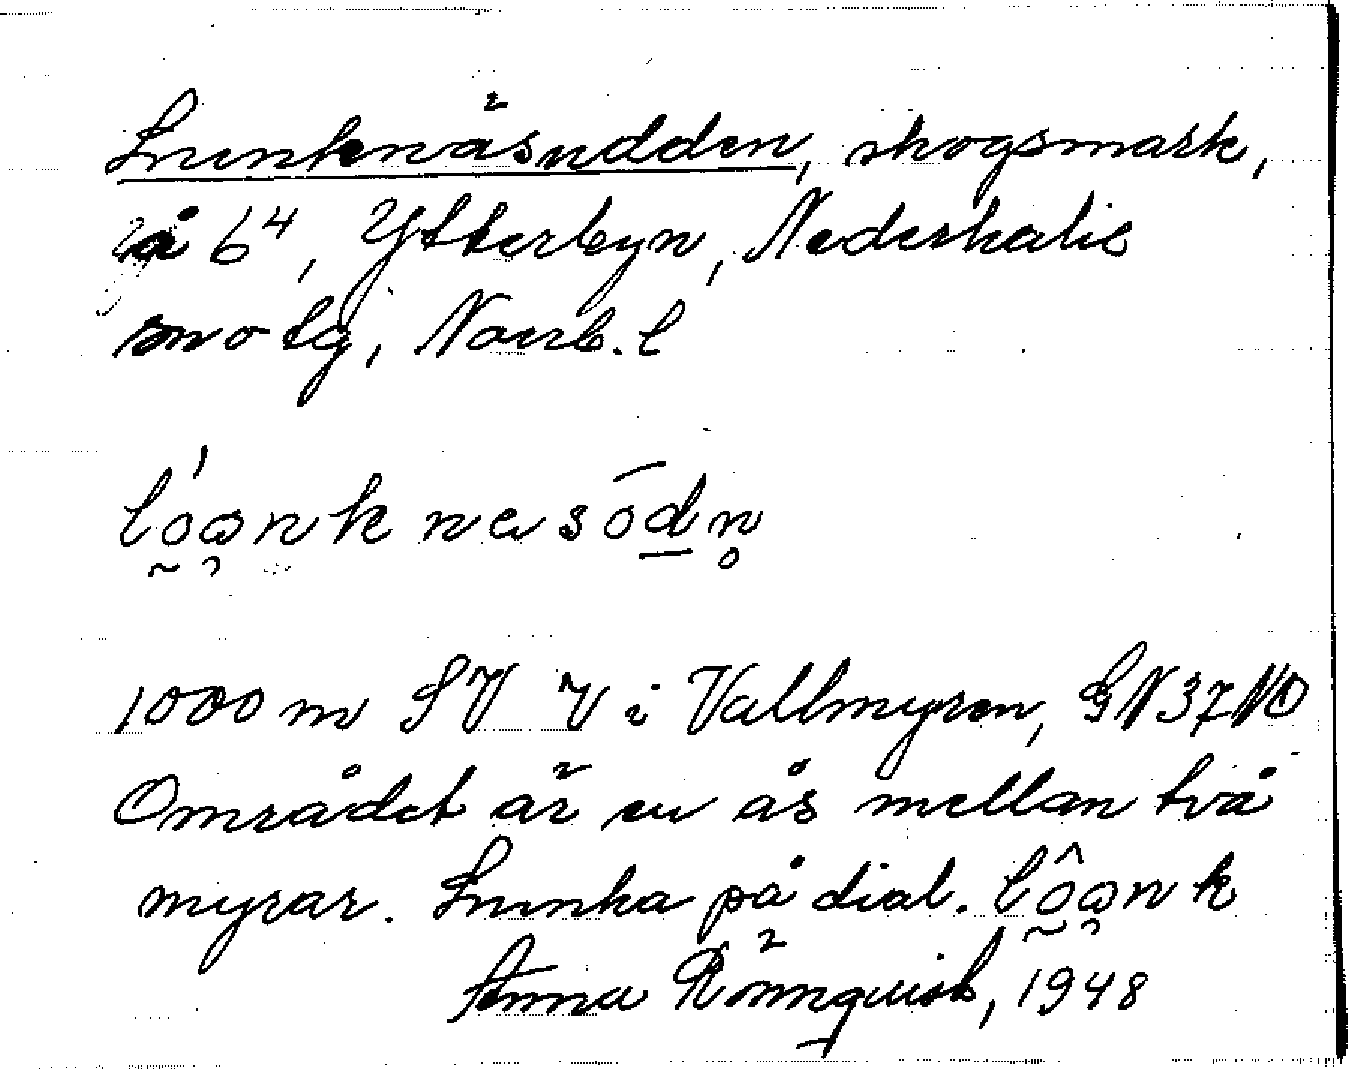 Lunknäsudden, skogsmark,
på 6⁴, Ytterbyn, Nederkalix
sn o tg, Norrb. l
1000 m SV V i Vallmyren, GN37NO
Området är en ås mellan två
myrar. Lunka på dial. lôank
Anna Rönnquist, 1948